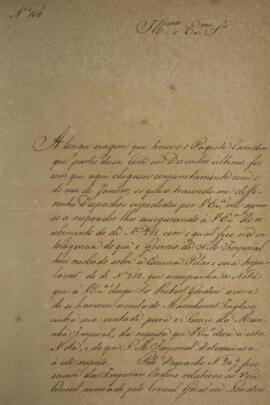 Nº 164
Illmo e Exmo Sr
A longa viagem que trouxe o Paquete Camden
que partio dessa Corte em Dezembro ultimo, fez
com que aqui chegasse conjunctamente com o
de mez de Janeiro, os quaes trazendo-me diffe-
rentes Despachos expedidos por VExa
so a responder-lhes assegurando a VExa do re-
cebimento do de Nº 211 com o qual fico na in-
telligencia do que o Governo de S.M. Imperial
tem resolvido sobre a Escuna
de Nº 212 que acompanha a Nota
que a VExa dirigio Sir Robert Gordon acerca
de se haverem mandado Marinheiros Inglezes
contra sua vontade para o Serviço da Mari-
nha Imperial, da resposta que VExa dera a esta
Nota, e do que S.M. Imperial Determinara
a este respeito. Pelo Despacho Nº 213 fico
sciente das Imperiaes Ordens relativas ao Vice
Consul nomeado pelo Consul Geral em Londres